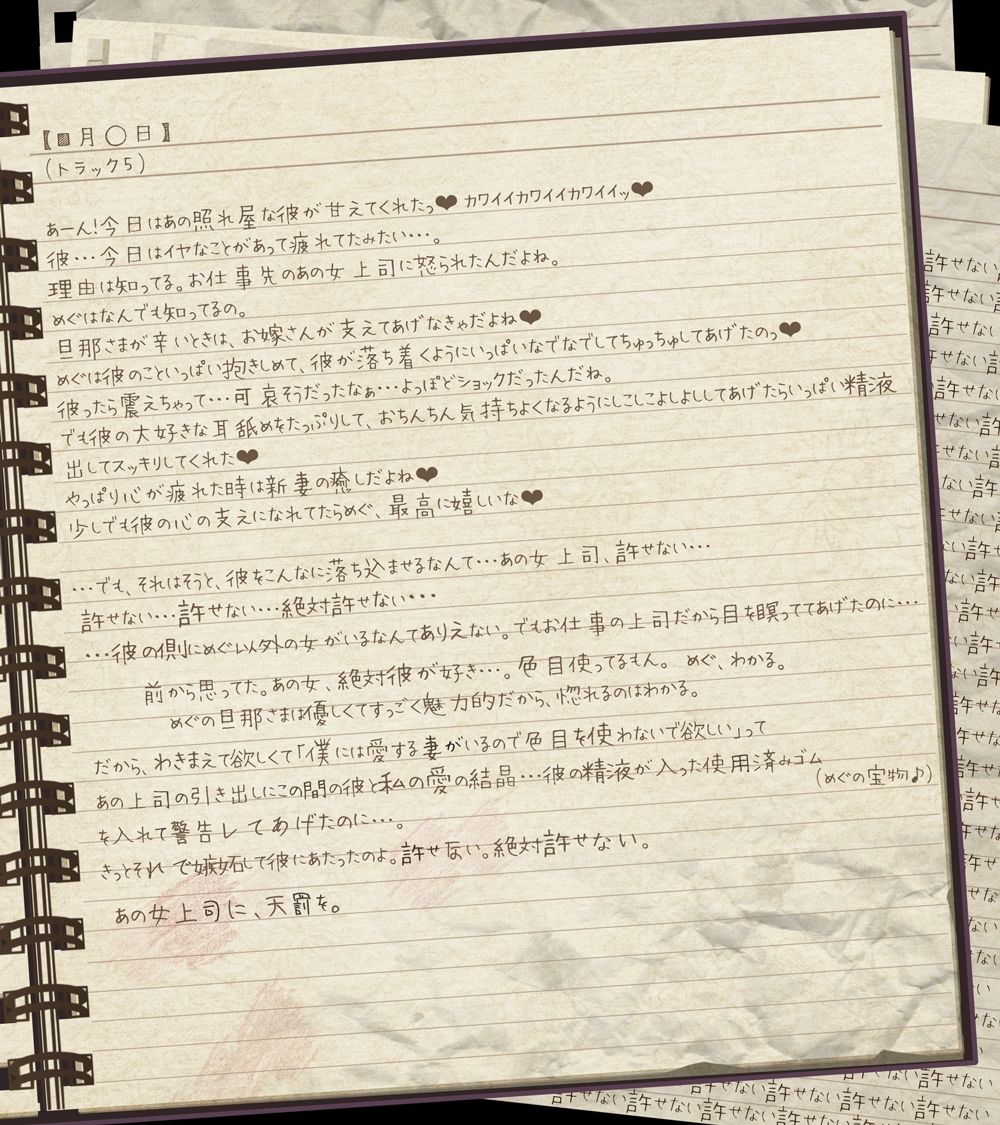 【■月◯日】
(トラック5)
あーん!今日はあの照れ屋な彼が甘えてくれたっ♥カワイイカワイイカワイイッ♥
彼…今日はイヤなことがあって疲れてたみたい…。
理由は知ってる。お仕事先のあの女上司に怒られたんだよね。
めぐはなんでも知ってるの。
旦那さまが辛いときは、お嫁さんが支えてあげなきゃだよね♥
めぐは彼のこといっぱい抱きしめて、彼が落ち着くようにいっぱいなでなでしてちゅっちゅしてあげたのっ♥
彼ったら震えちゃって…可哀そうだったなぁ…よっぽどショックだったんだね。
でも彼の大好きな耳舐めをたっぷりして、おちんちん気持ちよくなるようにしこしこよしよししてあげたらいっぱい精液
出してスッキリしてくれた♥
やっぱり心が疲れた時は新妻の癒しだよね♥
少しでも彼の心の支えになれてたらめぐ、最高に嬉しいな♥
…でも、それはそうと、彼をこんなに落ち込ませるなんて…あの女上司、許せない…
許せない…許せない…絶対許せない…
…彼の側にめぐ以外の女がいるなんてありえない。でもお仕事の上司だから目を瞑っててあげたのに…
前から思ってた。あの女、絶対彼が好き…。色目使ってるもん。 めぐ、わかる。
めぐの旦那さまは優しくてすっごく魅力的だから、惚れるのはわかる。
だから、わきまえて欲しくて「僕には愛する妻がいるので色目を使わないで欲しい」って
あの上司の引き出しにこの間の彼と私の愛の結晶…彼の精液が入った使用済みゴム
(めぐの宝物♪)
を入れて警告してあげたのに…。
きっとそれで嫉妬して彼にあたったのよ。許せない。絶対許せない。
あの女上司に、天罰を。
許せない
許せない
許せない
許せない
許せない
許せない
許せない許せない許せない許せない許せない
許せない許せない許せない許せない許せない